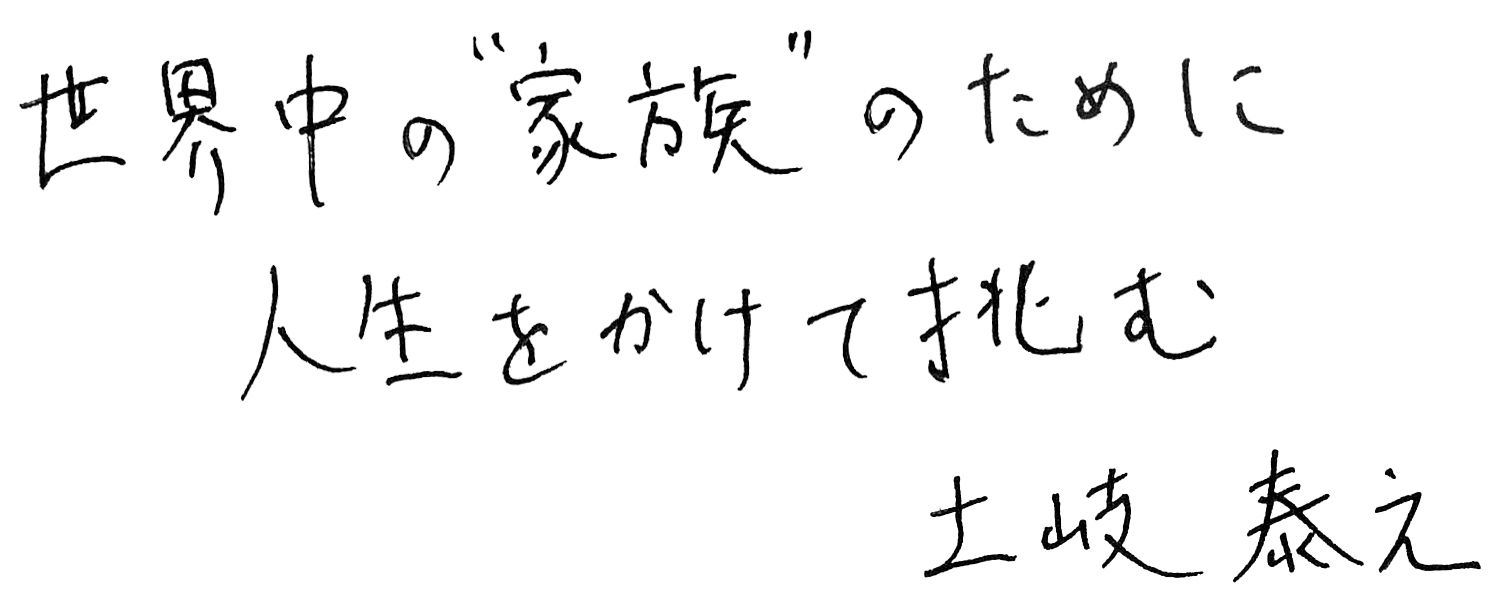 世界中の“家族”のために
人生をかけて挑む
土岐泰之